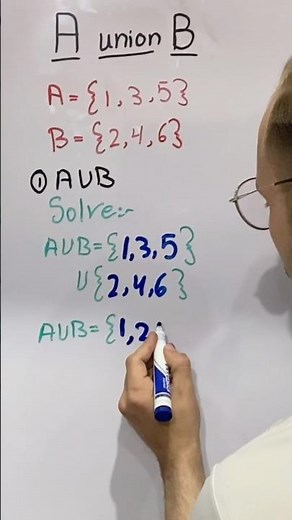 A union B
A = {1, 3, 5}
B = {2, 4, 6}
① AUB
Solve:-
AUB = {1, 3, 5}
U {2, 4, 6}
AUB = {1, 2